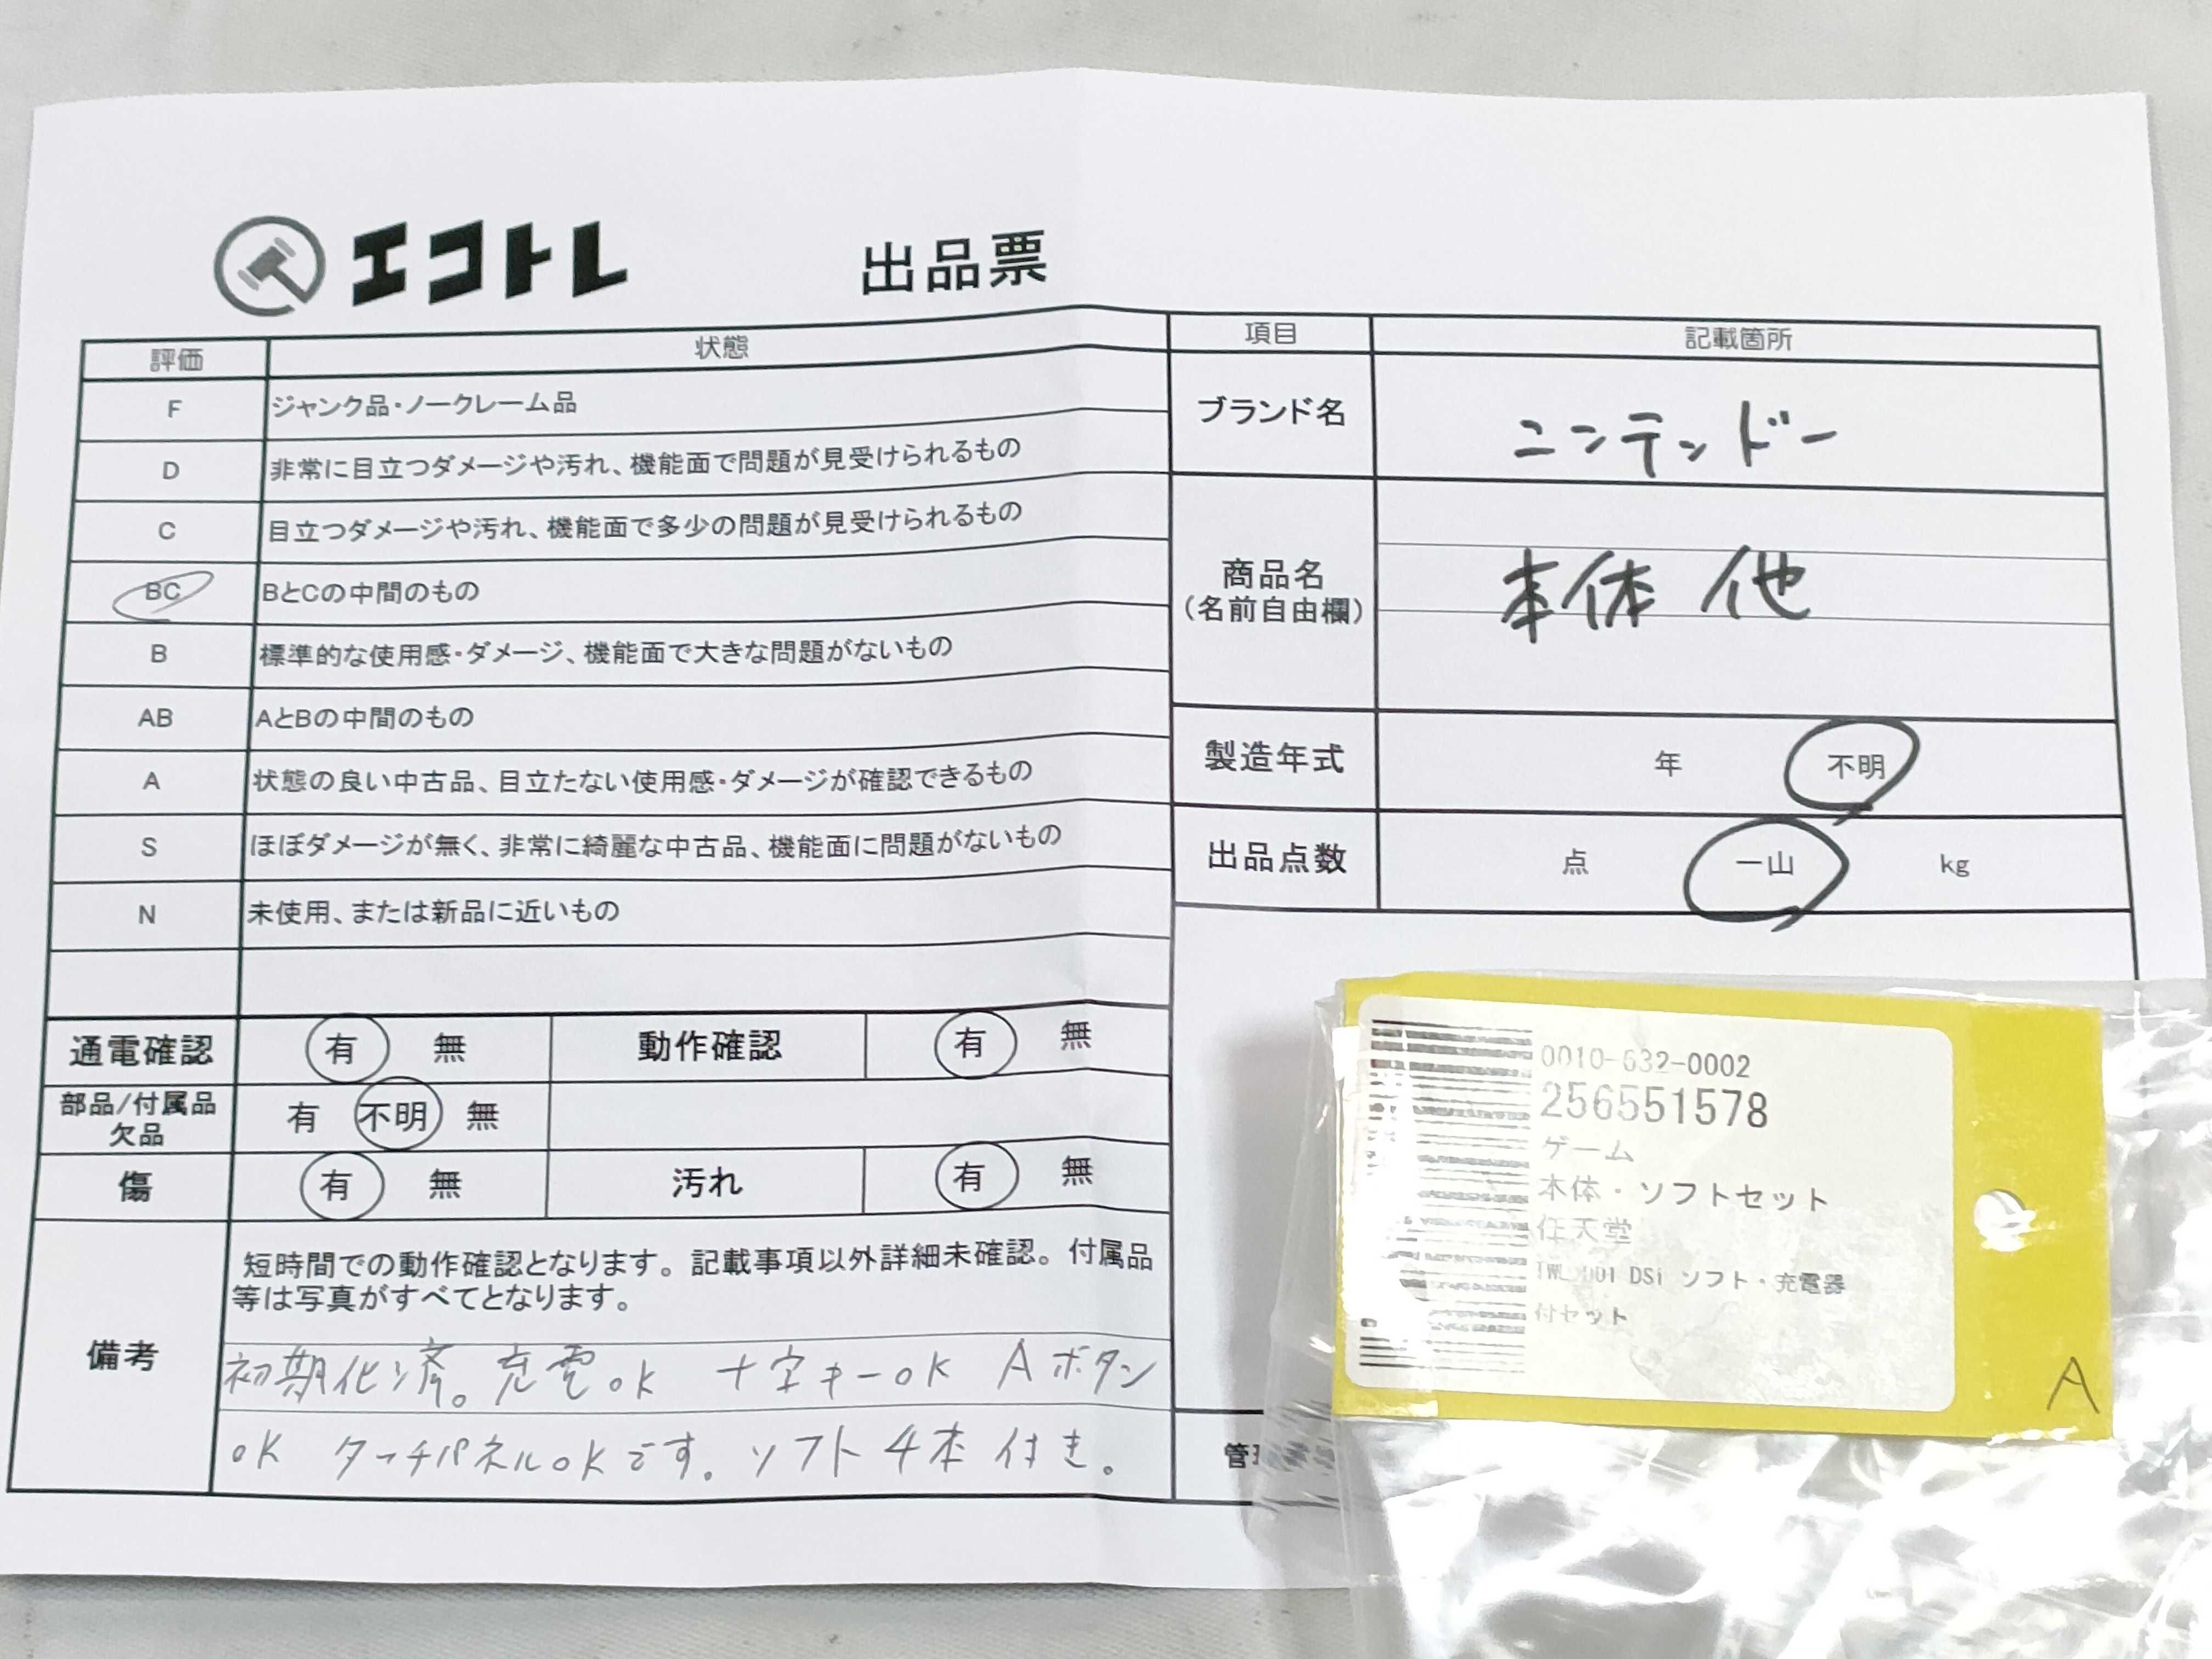 エコトレ 出品票
評価 状態
F ジャンク品・ノークレーム品
D 非常に目立つダメージや汚れ、機能面で問題が見受けられるもの
C 目立つダメージや汚れ、機能面で多少の問題が見受けられるもの
BC BとCの中間のもの
B 標準的な使用感・ダメージ、機能面で大きな問題がないもの
AB AとBの中間のもの
A 状態の良い中古品、目立たない使用感・ダメージが確認できるもの
S ほぼダメージが無く、非常に綺麗な中古品、機能面に問題がないもの
N 未使用、または新品に近いもの
通電確認 有 無 動作確認 有 無
部品/付属品
欠品
有 不明 無
傷 有 無 汚れ 有 無
備考
短時間での動作確認となります。記載事項以外詳細未確認。付属品
等は写真がすべてとなります。
初期化済。充電OK 十字キーOK Aボタン
OK タッチパネルOKです。ソフト4本付き。
項目 記載箇所
ブランド名 ニンテンドー
商品名
(名前自由欄)
本体 他
製造年式 年 不明
出品点数 点 一山 kg
0010-632-0002
256551578
ゲーム
本体・ソフトセット
任天堂
DSi ソフト・充電器
付セット
A